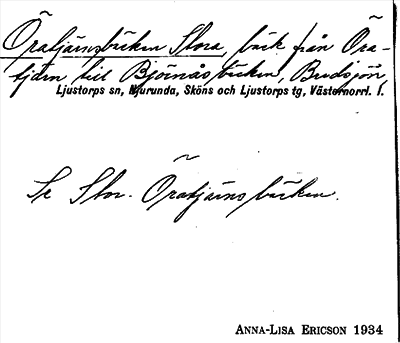 Öratjärnsbäcken Stora, bäck från Öra-
tjärn till Björnåsbäcken, Brudsjön,
Ljustorps sn, Njurunda, Sköns och Ljustorps tg, Västernorrl. l.
Se Stor-Öratjärnsbäcken.
ANNA-LISA ERICSON 1934